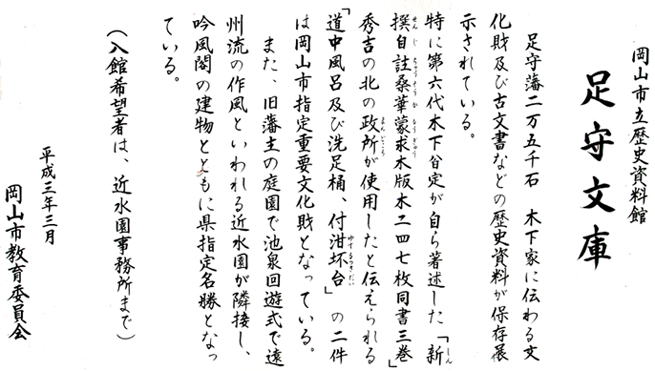 岡山市立歴史資料館
足守文庫
足守藩二万五千石　木下家に伝わる文
化財及び古文書などの歴史資料が保存展
示されている。
特に第六代木下㒶定が自ら著述した「新
撰自註桑華蒙求木版木二四七枚同書三巻」
秀吉の北の政所が使用したと伝えられる
「道中風呂及び洗足桶、付泔坏台」の二件
は岡山市指定重要文化財となっている。
また、旧藩主の庭園で池泉回遊式で遠
州流の作風といわれる近水園が隣接し、
吟風閣の建物とともに県指定名勝となっ
ている。
（入館希望者は、近水園事務所まで）
平成三年三月
岡山市教育委員会